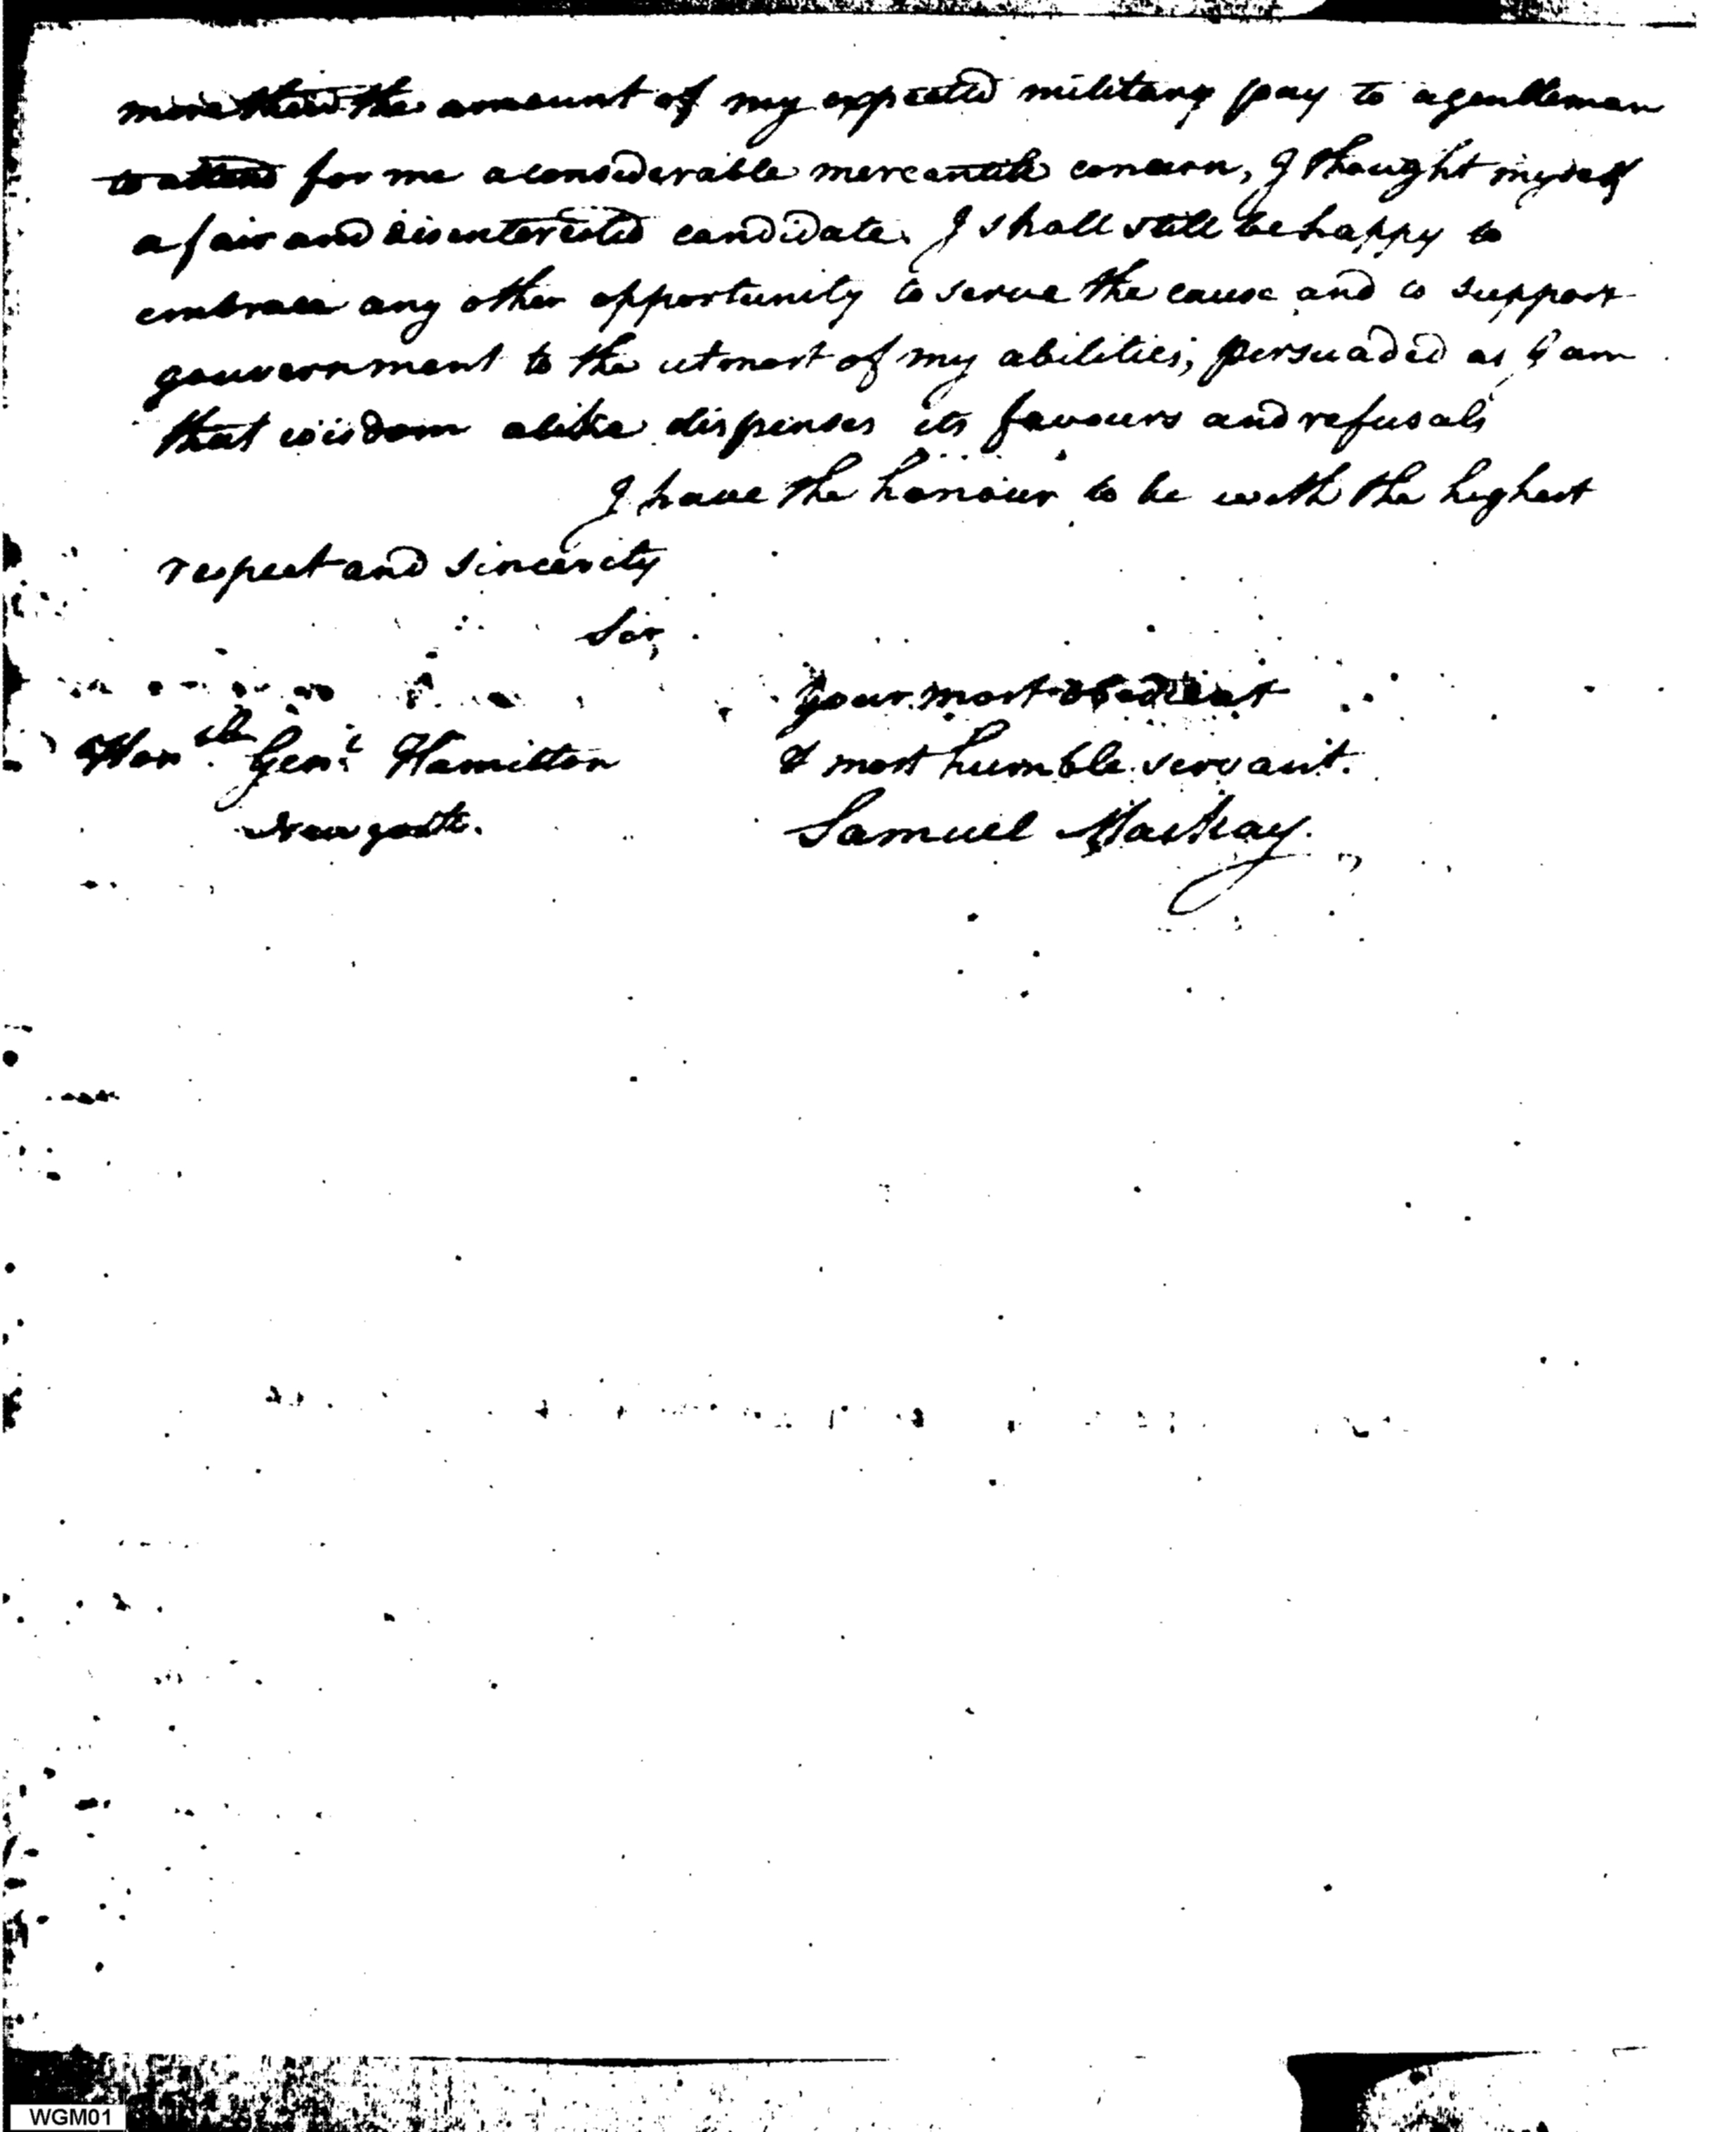 more than the amount of my expected military pay to a gentleman
to attend for me a considerable mercantile concern, I thought myself
a fair and disinterested candidate. I shall still be happy to
embrace any other opportunity to serve the cause and to support
gouvernment to the utmost of my abilities, persuaded as I am
that wisdom alike dispenses its favours and refusals
I have the honour to be with the highest
respect and sincerity
Sir,
your most obedient
Honble. Genl. Hamilton & most humble servant.
New york. Samuel Mackay.
WGM01